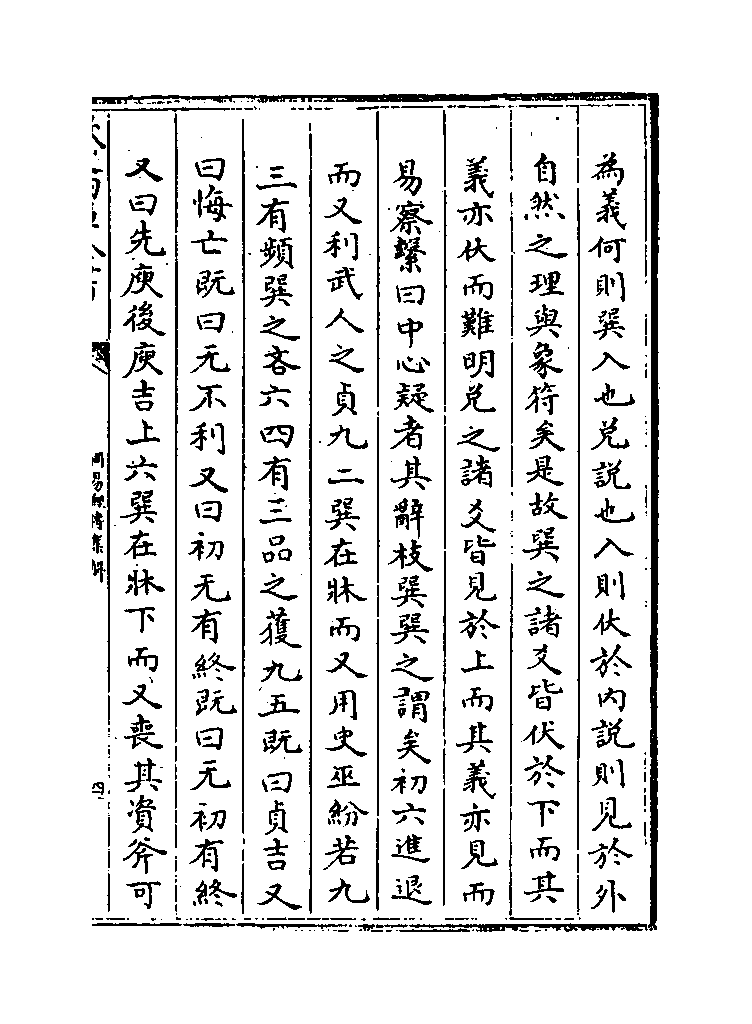 為義何則巽入也兌說也入則伏於內說則見於外
自然之理與象符矣是故巽之諸爻皆伏於下而其
義亦伏而難明兌之諸爻皆見於上而其義亦見而
易察繫曰中心疑者其辭枝巽巽之謂矣初六進退
而又利武人之貞九二巽在牀而又用史巫紛若九
三有頻巽之吝六四有三品之獲九五既曰貞吉又
曰悔亡既曰无不利又曰初无有終既曰无初有終
又曰先庚後庚吉上六巽在牀下而又喪其資斧可
周易經傳集解
四